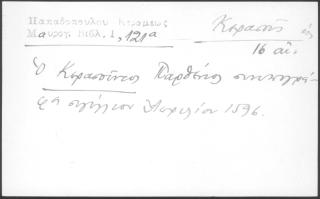 Παπαδοπούλου Κεραμεως
Μαυρογ. Βιβλ. Ι, 121α
Κερασοῦς
16 αἰ.
Ὁ Κερασοῦντος Παρθένιος συνυπογρά-
φει σιγίλλιον Ἀπριλίου 1596.